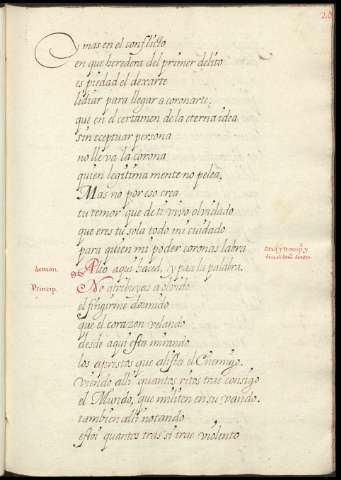 y mas en el conflicto
en que heredera del primer delito
es piedad el dexarte
lidiar para llegar a coronarte,
que en el certamen de la eterna idea
sin eceptuar persona
no lleva la corona
quien legitima mente no pelea.
Mas no por eso crea
tu temor que de ti vivo olvidado
que eres tu sola todo mi cuidado
para quien mi poder coronas labra
demon. Alto aqui haced, y pase la palabra,
Princip. No atribuyas a olvido
el fingirme dormido
que el corazon velando
desde aqui esta mirando
los aprestos que alista el Enemigo.
viendo alli quantos ritos trae consigo
el Mundo, que militen en su vando.
tambien alli notando
estoi quantos tras si trae violento